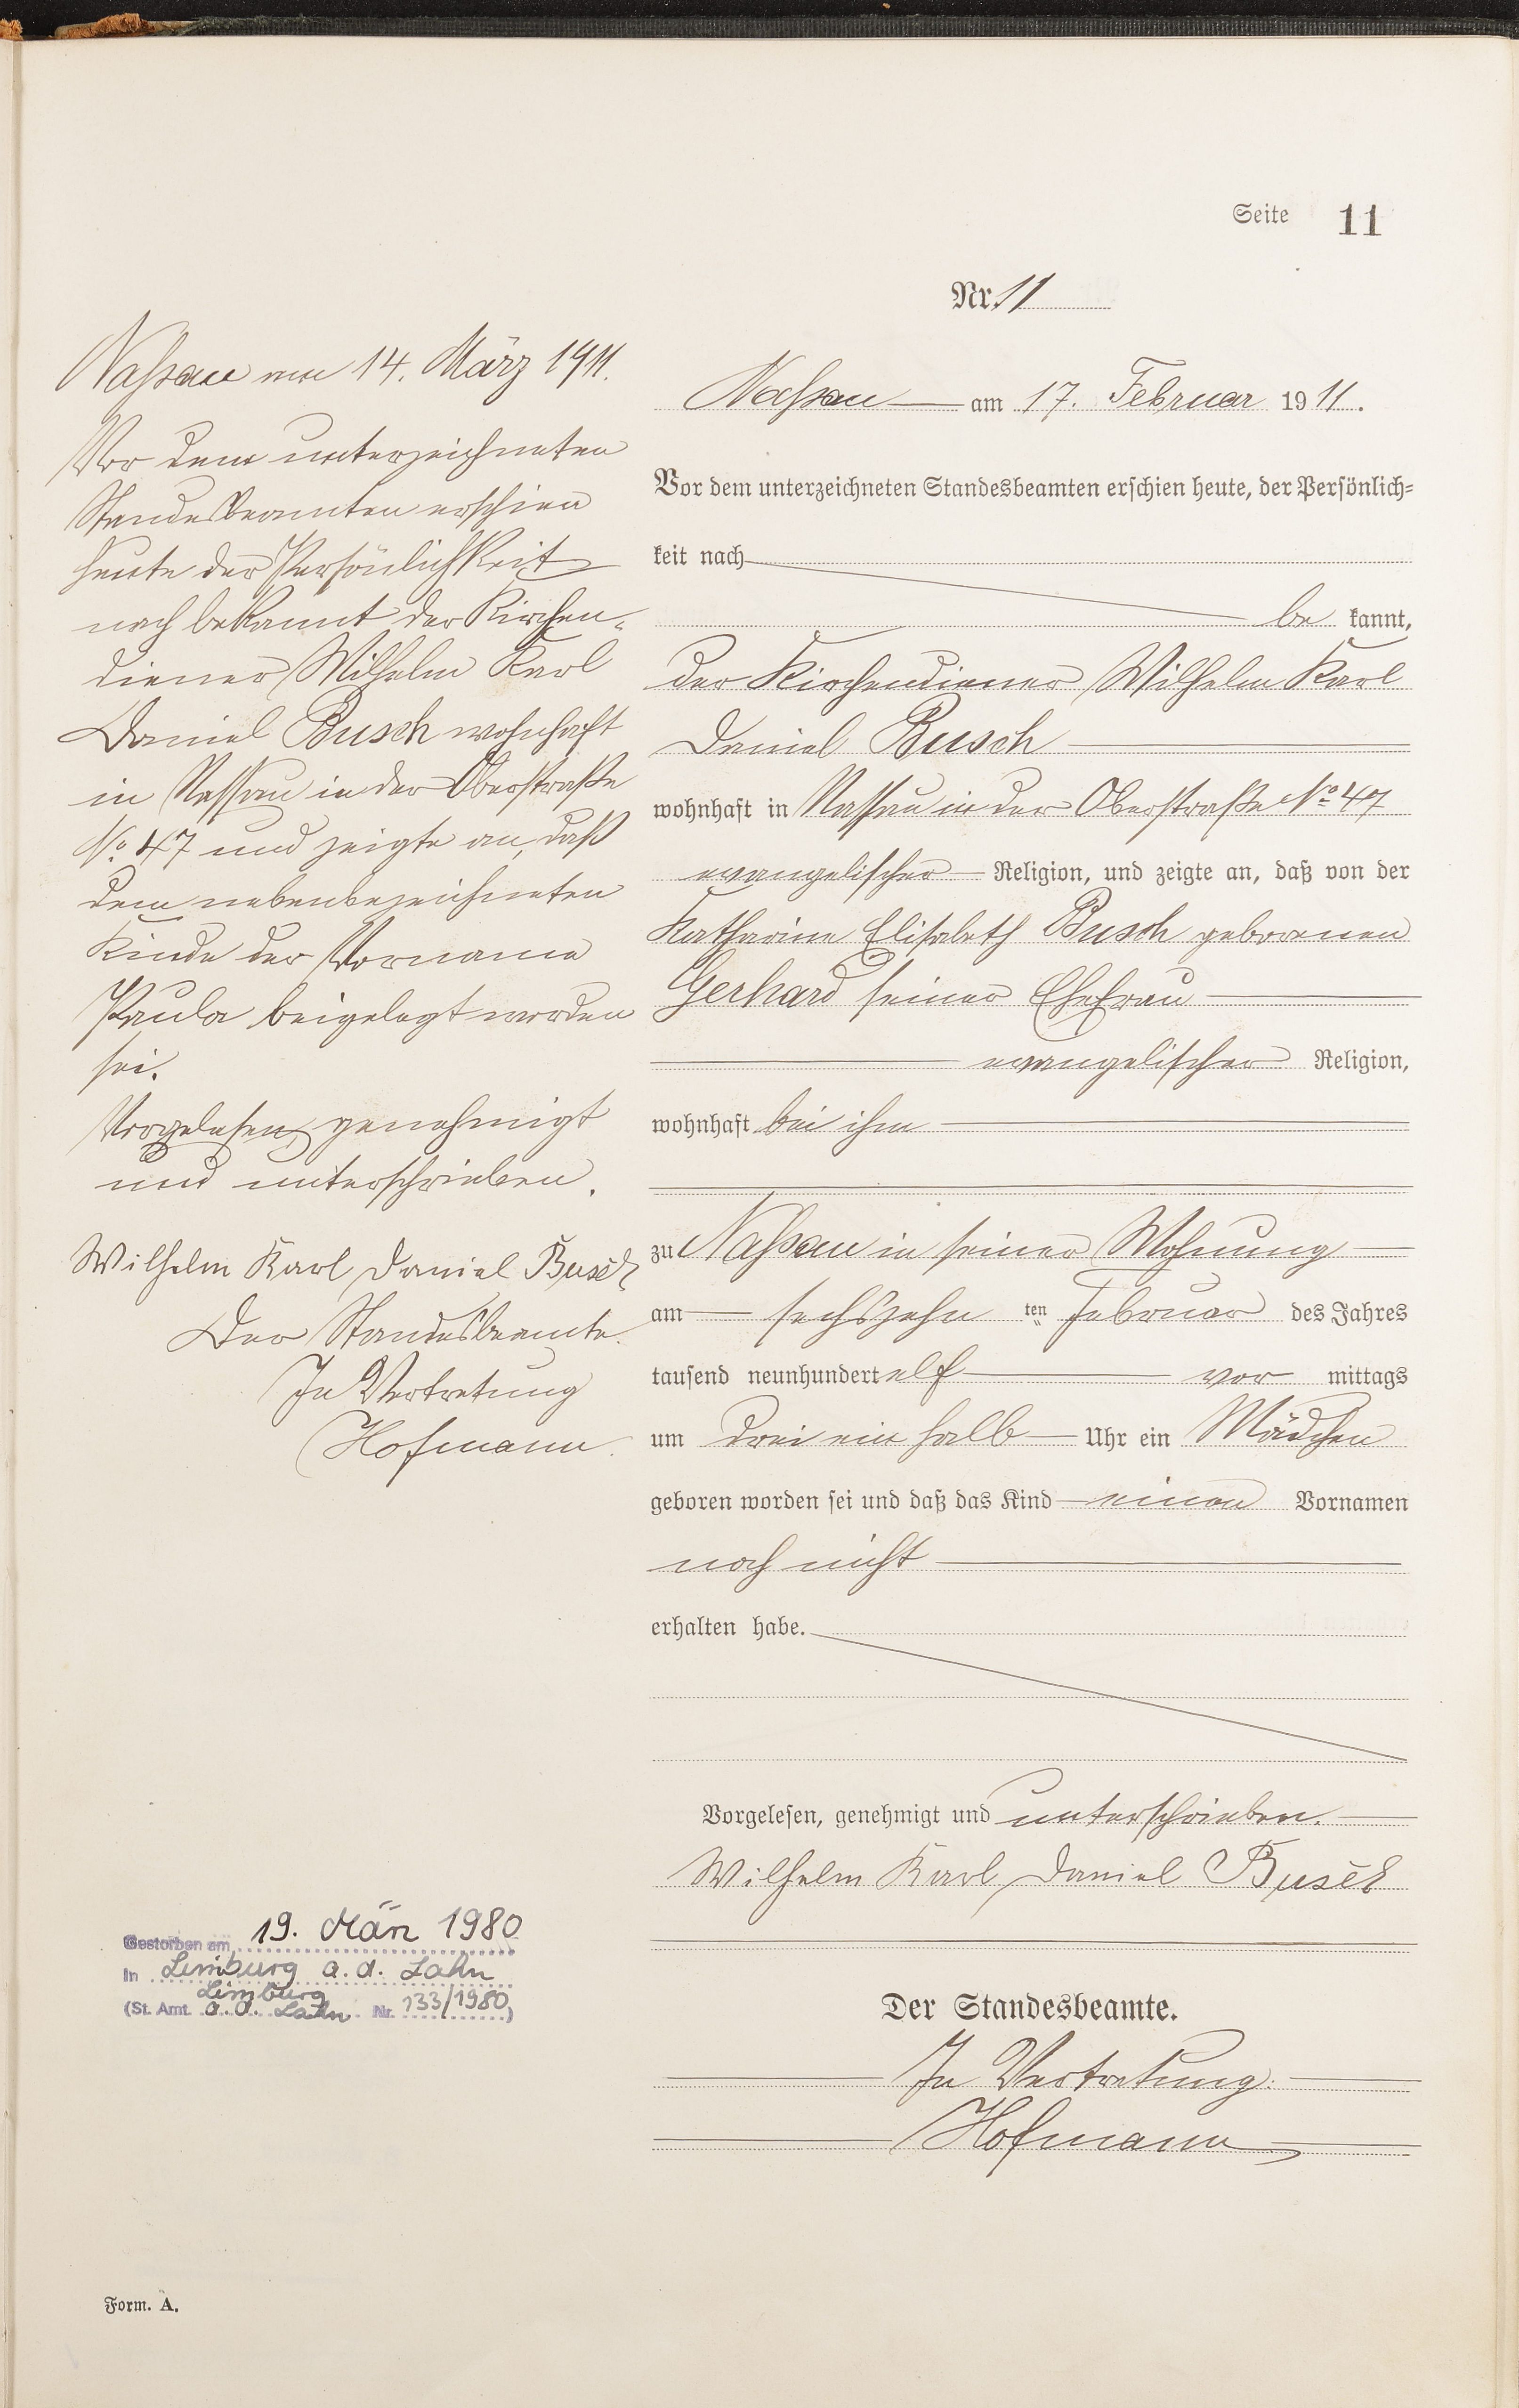 Seite 11
Nr. 11
Nassau am 17. Februar 1911.
Vor dem unterzeichneten Standesbeamten erschien heute, der Persönlich-
keit nach
be kannt,
der Kirchendiener Wilhelm Karl
Daniel Busch
wohnhaft in Nassau in der Oberstraße No 47
evangelischer Religion, und zeigte an, daß von der
Katharine Elisabeth Busch geborenen
Gerhard seiner Ehefrau
evangelischer Religion,
wohnhaft bei ihm
zu Nassau in seiner Wohnung
am sechszehn ten Februar des Jahres
tausend neunhundert elf vor mittags
um drei ein halb Uhr ein Mädchen
geboren worden sei und daß das Kind einen Vornamen
noch nicht
erhalten habe.
Vorgelesen, genehmigt und unterschrieben.
Wilhelm Karl Daniel Busch
Der Standesbeamte.
In Vertretung.
Hofmann
Nassau am 14. März 1911.
Vor dem unterzeichneten
Standesbeamten erschien
heute der Persönlichkeit
nach bekannt der Kirchen-
diener Wilhelm Karl
Daniel Busch wohnhaft
in Nassau in der Oberstraße
No 47 und zeigte an, daß
dem nebenbezeichneten
Kinde der Vorname
Paula beigelegt worden
sei.
Vorgelesen, genehmigt
und unterschrieben.
Wilhelm Karl Daniel Busch
Der Standesbeamte.
In Vertretung
Hofmann.
Gestorben am 19. März 1980
in Limburg a. d. Lahn
(St. Amt Limburg a. d. Lahn Nr. 133/1980)
Form. A.